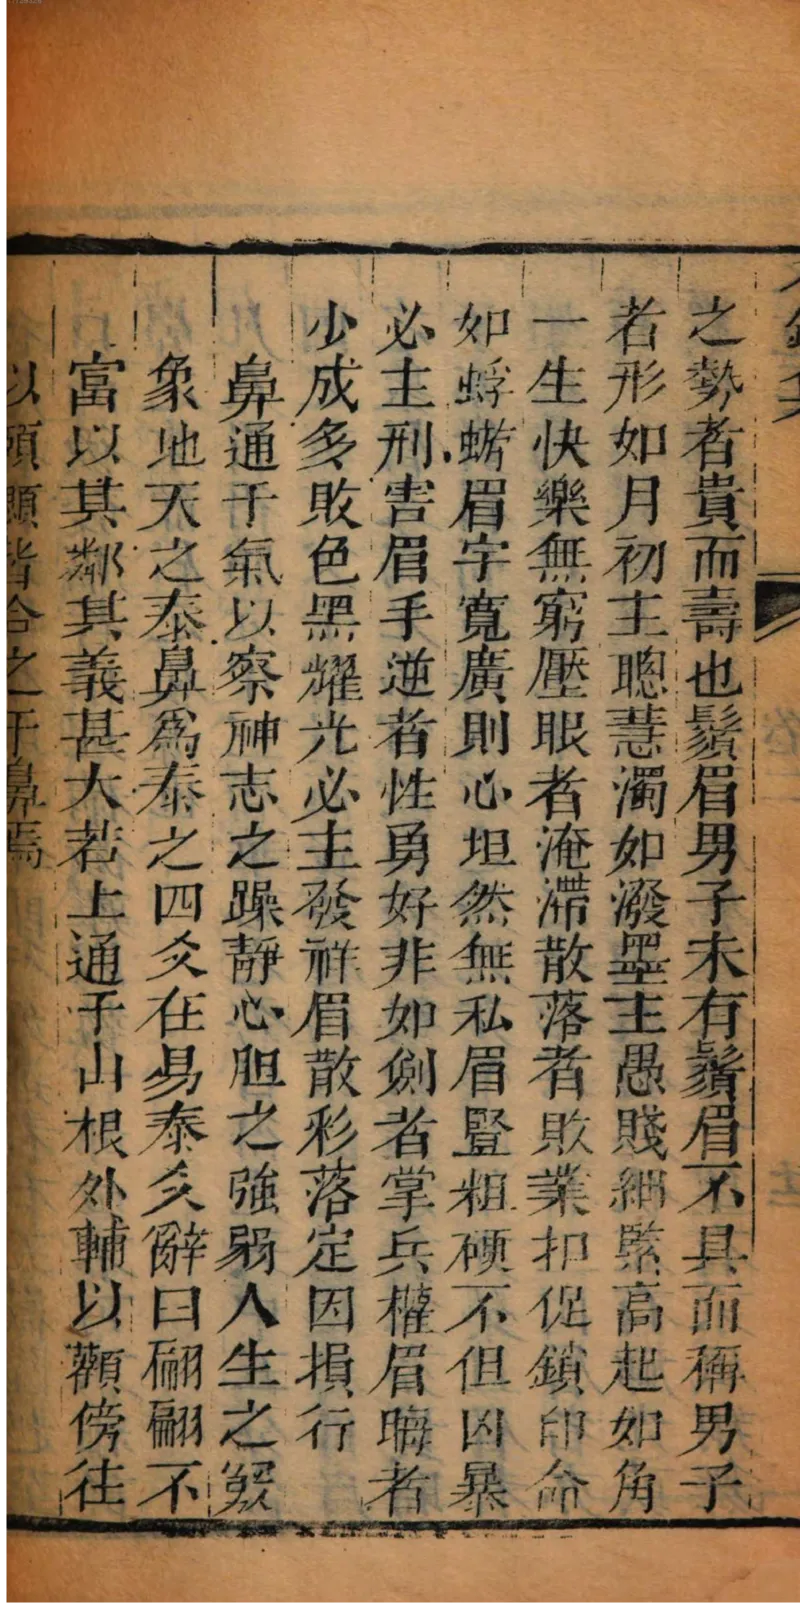 之勢者貴而壽也鬚眉男子未有鬚眉不具而稱男子
者形如月初主聰慧濁如潑墨主愚賤細緊高起如角
一生快樂無窮壓眼者淹滯散落者敗業扣促鎖印命
如蜉蝣眉宇寬廣則心坦然無私眉豎粗硬不但凶暴
必主刑害眉手逆者性勇好非如劍者掌兵權眉晦者
少成多敗色黑耀光必主發祥眉散彩落定因損行
鼻通于氣以察神志之躁靜心胆之強弱人生之貌
象地天之泰鼻為泰之四爻在易泰爻辭曰翩翩不
富以其鄰其義甚大若上通于山根外輔以顴傍往
以頭顯皆合之于鼻焉